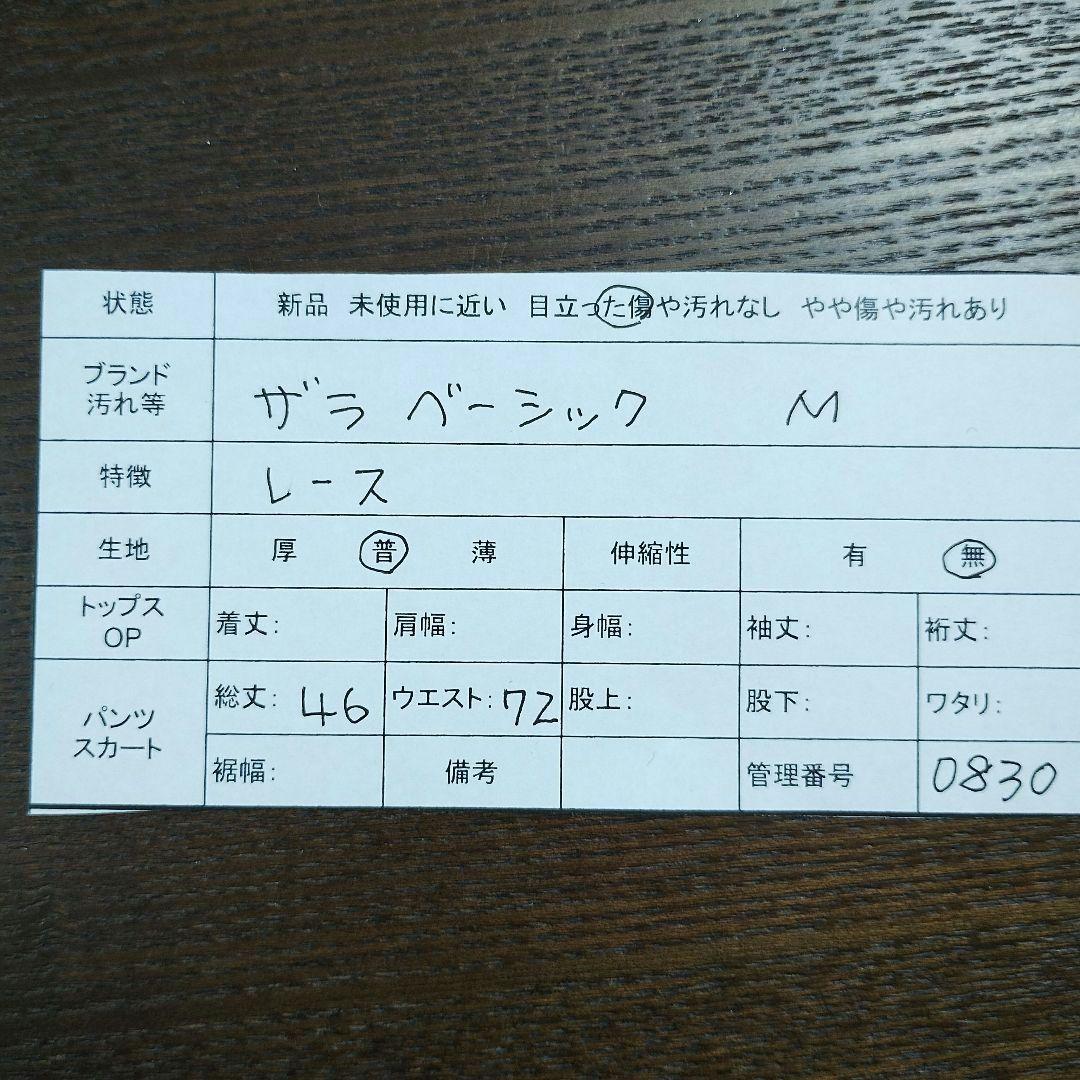 状態 新品 未使用に近い 目立った傷や汚れなし やや傷や汚れあり
ブランド
汚れ等 ザラ ベーシック M
特徴 レース
生地 厚 普 薄 伸縮性 有 無
トップス
OP 着丈: 肩幅: 身幅: 袖丈: 裄丈:
総丈: 46 ウエスト: 72 股上: 股下: ワタリ:
パンツ
スカート
裾幅: 備考 管理番号 0830